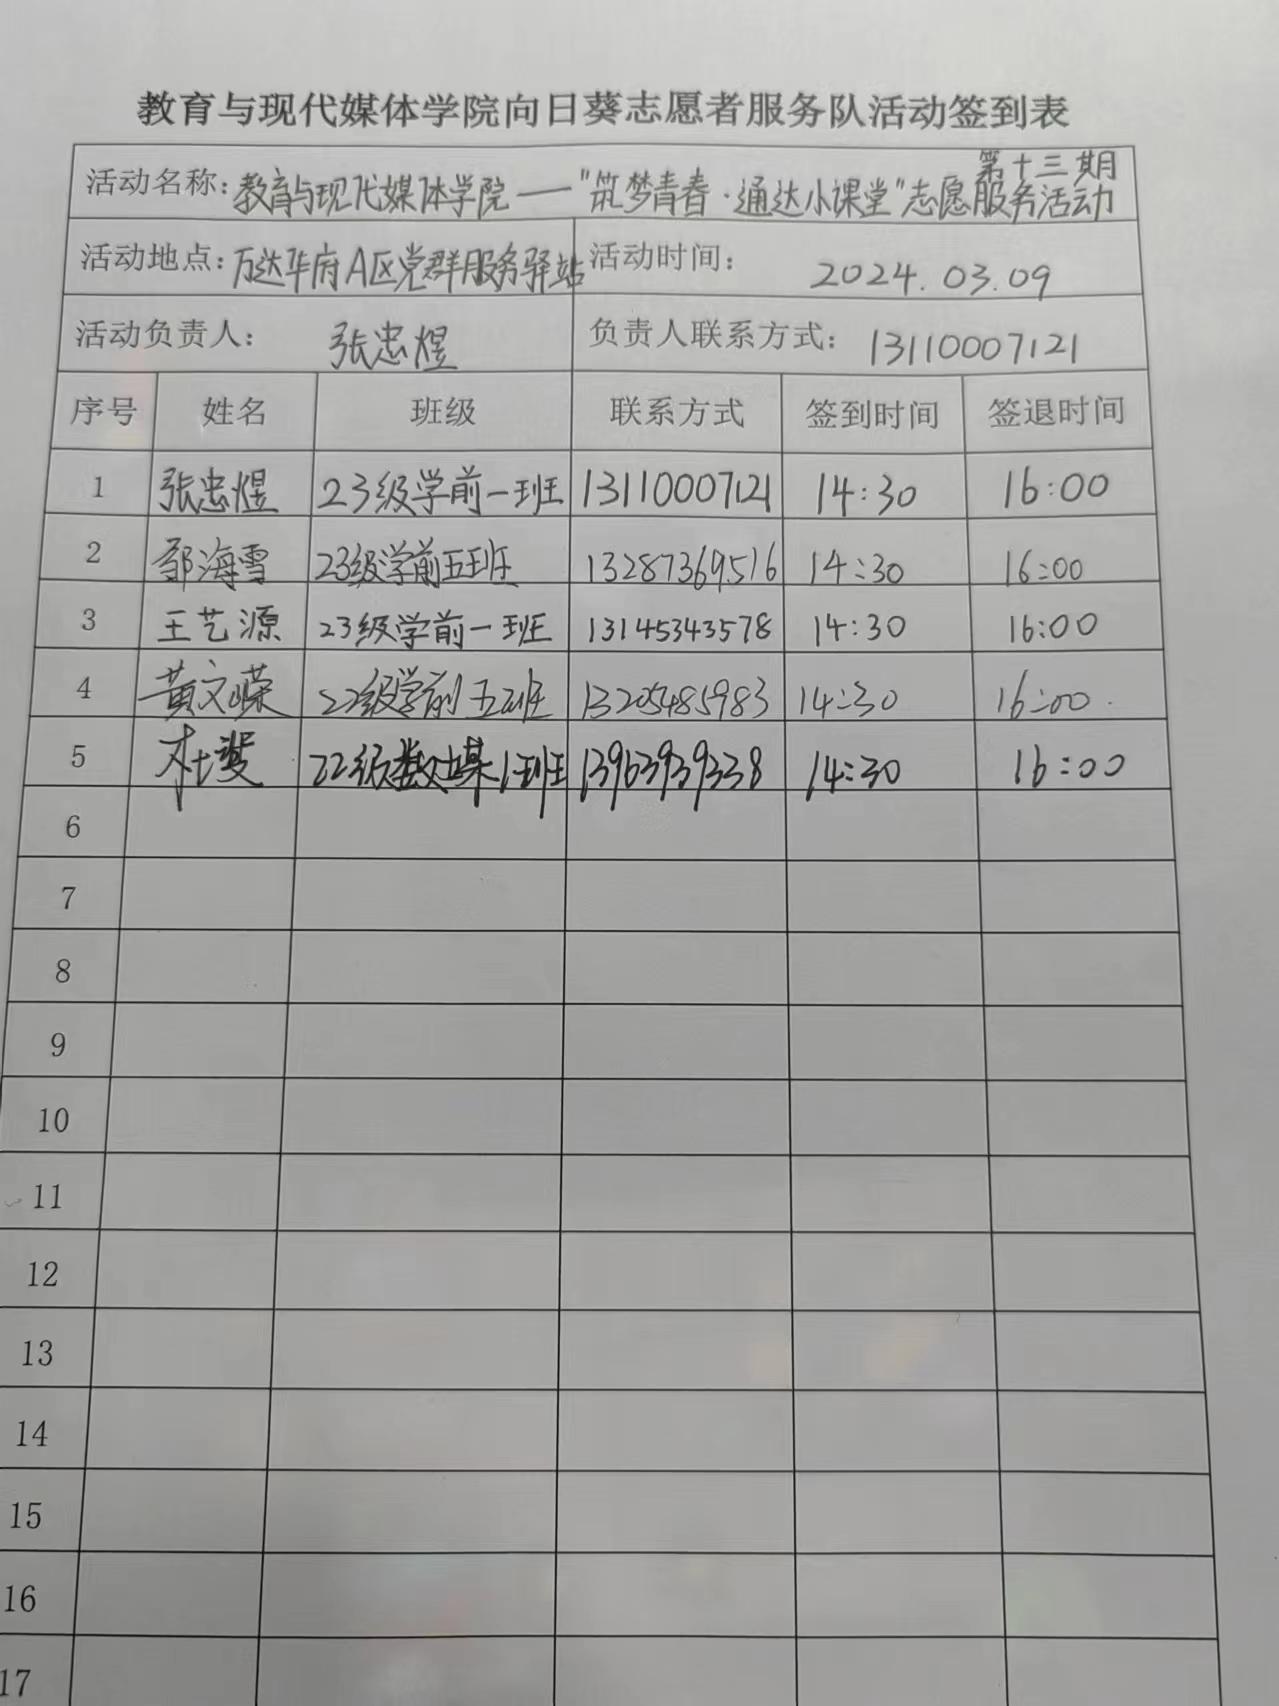 教育与现代媒体学院向日葵志愿者服务队活动签到表
第十三期
活动名称：教育与现代媒体学院——"筑梦青春·通达小课堂"志愿服务活动
活动地点：万达华府A区党群服务驿站 活动时间： 2024.03.09
活动负责人： 张忠煜 负责人联系方式： 13110007121
序号 姓名 班级 联系方式 签到时间 签退时间
1 张忠煜 23级学前一班 13110007121 14:30 16:00
2 邹海雪 23级学前五班 13287369516 14:30 16:00
3 王艺源 23级学前一班 13145343578 14:30 16:00
4 黄文嵘 22级学前五班 13205485983 14:30 16:00
5 杜斐 22级数媒1班 13963939338 14:30 16:00
6
7
8
9
10
11
12
13
14
15
16
17